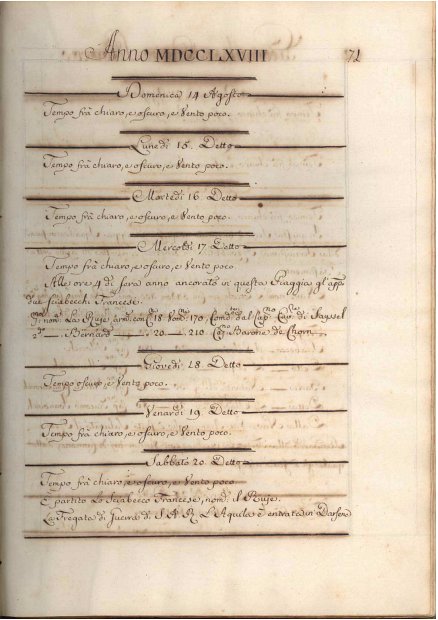 Anno MDCCLXVIII 71
Domenica 14 Agosto
Tempo frà chiaro, e oscuro, e Vento poco.
Lunedì 15. Detto
Tempo frà chiaro, e oscuro, e Vento poco.
Martedì 16. Detto
Tempo frà chiaro, e oscuro, e Vento poco.
Mercoldì 17. Detto
Tempo frà chiaro, e oscuro, e Vento poco.
Alle ore 4 di sera anno ancorato in questa Piaggia gl'app.
due Sciabecchi Francesi.
nom. La Ruse, arm. can. 18. Uom. 170. Com. dal Cap. Cav. di
2. — Bernard — 20. — 210. Barone de
Giovedì 18. Detto
Tempo oscuro, e Vento poco.
Venardì 19. Detto
Tempo frà chiaro, e oscuro, e Vento poco.
Sabbato 20. Detto
Tempo frà chiaro, e oscuro, e Vento poco.
È partito Lo Sciabecco Francese, nom. il Ruse.
La Fregata di Guerra di S. A. R. L'Aquila è entrata in Darsena